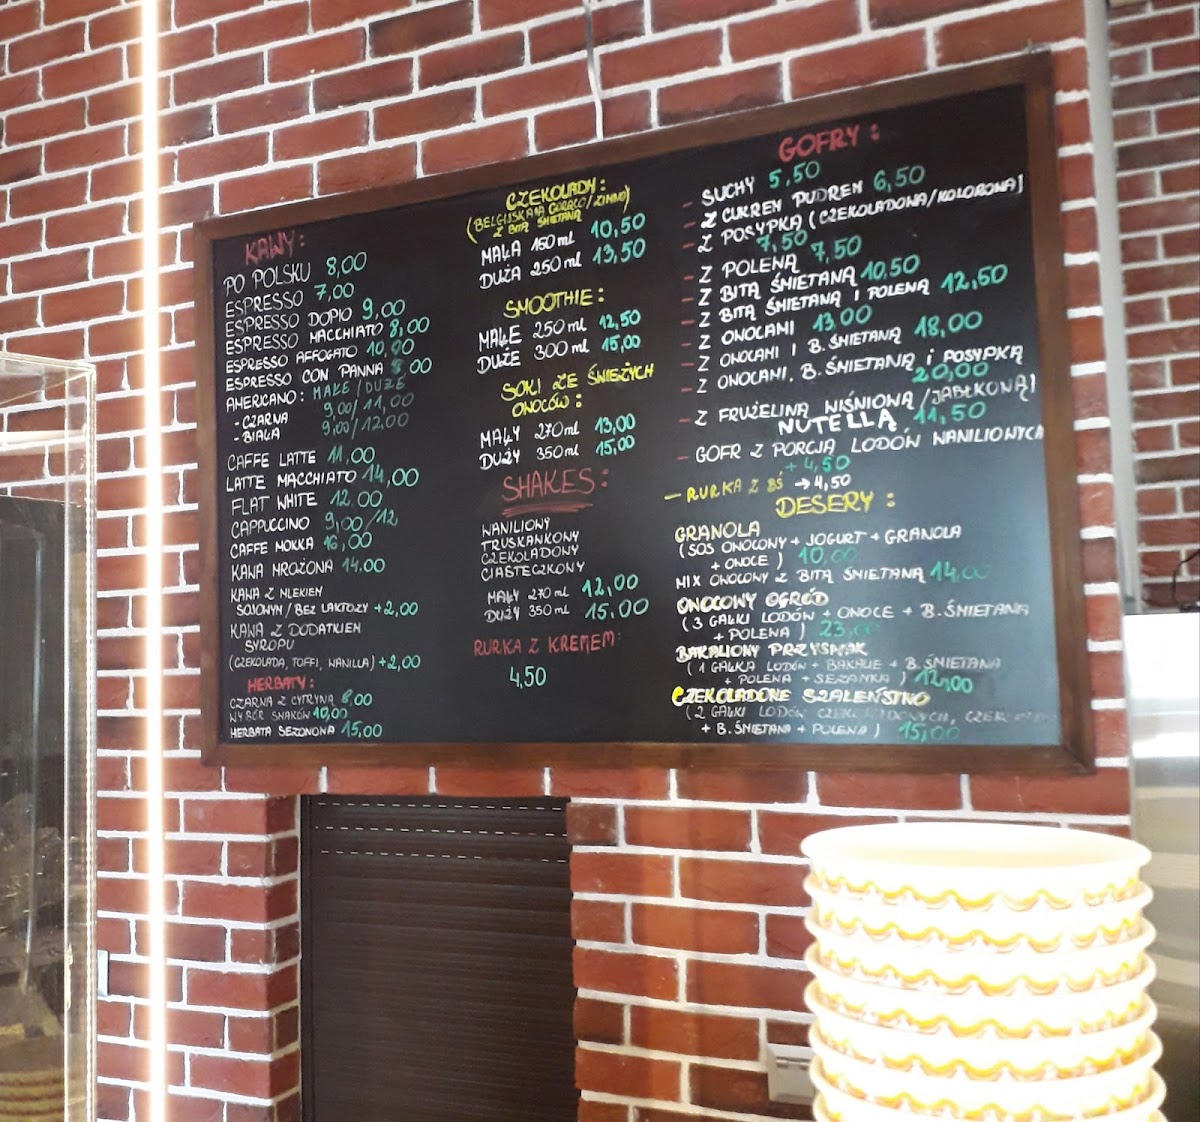 KAWY:
PO POLSKU 8,00
ESPRESSO 7,00
ESPRESSO DOPIO 9,00
ESPRESSO MACCHIATO 8,00
ESPRESSO AFFOGATO 10,00
ESPRESSO CON PANNA 8,00
AMERICANO: MAŁE/DUŻE
- CZARNA 9,00/11,00
- BIAŁA 9,00/12,00
CAFFE LATTE 11,00
LATTE MACCHIATO 14,00
FLAT WHITE 12,00
CAPPUCCINO 9,00/12
CAFFE MOKKA 16,00
KAWA MROŻONA 14.00
KAWA Z MLEKIEM
SOJOWYM/BEZ LAKTOZY +2,00
KAWA Z DODATKIEM
SYROPU
(CZEKOLADA, TOFFI, WANILLA) +2,00
HERBATY:
CZARNA Z CYTRYNĄ 8,00
WYBÓR SMAKÓW 10,00
HERBATA SEZONOWA 15,00
CZEKOLADY:
(BELGIJSKA NA GORĄCO/ZIMNO)
Z BITĄ ŚMIETANĄ
MAŁA 160 ml 10,50
DUŻA 250 ml 13,50
SMOOTHIE:
MAŁE 250 ml 12,50
DUŻE 300 ml 15,00
SOKI ZE ŚWIEŻYCH
OWOCÓW:
MAŁY 270 ml 13,00
DUŻY 350 ml 15,00
SHAKES:
WANILIOWY
TRUSKAWKOWY
CZEKOLADOWY
CIASTECZKOWY
MAŁY 270 ml 12,00
DUŻY 350 ml 15.00
RURKA Z KREMEM:
4,50
GOFRY:
- SUCHY 5,50
- Z CUKREM PUDREM 6,50
- Z POSYPKĄ (CZEKOLADOWA/KOLOROWA)
7,50
- Z POLEWĄ 7,50
- Z BITĄ ŚMIETANĄ 10,50
- Z BITĄ ŚMIETANĄ I POLEWĄ 12,50
- Z OWOCAMI 13,00
- Z OWOCAMI I B. ŚMIETANĄ 18,00
- Z OWOCAMI, B. ŚMIETANĄ i POSYPKĄ
20,00
- Z FRUŻELINĄ WIŚNIOWĄ/JABŁKOWĄ)
NUTELLĄ 11,50
- GOFR Z PORCJĄ LODÓW WANILIOWYCH
+ 4,50
- RURKA Z BŚ → 4,50
DESERY:
GRANOLA
(SOS OWOCOWY + JOGURT + GRANOLA
+ OWOCE) 10,00
MIX OWOCOWY Z BITĄ ŚMIETANĄ 14,00
OWOCOWY OGRÓD
(3 GAŁKI LODÓW + OWOCE + B. ŚMIETANA
+ POLEWA) 23,00
BAKALIOWY PRZYSMAK
(1 GAŁKA LODÓW + BAKALIE + B. ŚMIETANA
+ POLEWA + SEZAMKA) 12,00
CZEKOLADOWE SZALEŃSTWO
(2 GAŁKI LODÓW CZEKOLADOWYCH,
+ B. ŚMIETANA + POLEWA) 15,00